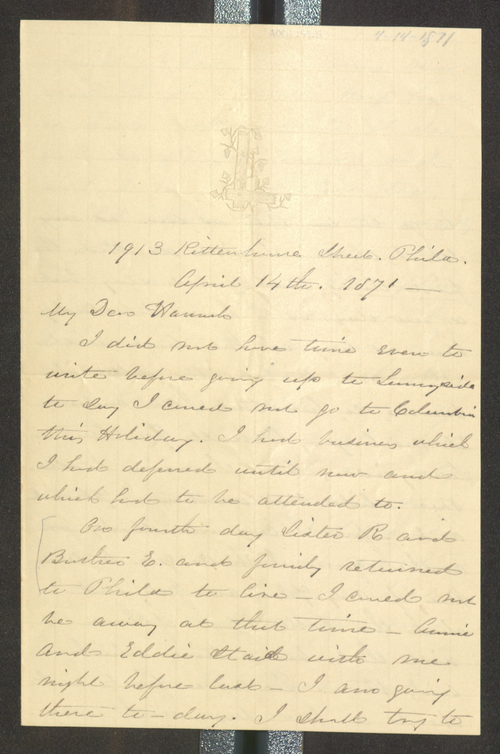 4-14-1871
1913 Rittenhouse Street. Philda.
April 14th. 1871 —
My Dear Hannah
I did not have time even to
write before going up to Sunnyside
to say I could not go to Columbia
this Holiday. I had business which
I had deferred until now and
which had to be attended to.
On fourth day Sister R and
Brother E. and family returned
to Philda to live — I could not
be away at that time — Annie
and Eddie staid with me
night before last — I am going
there to-day. I shall try to